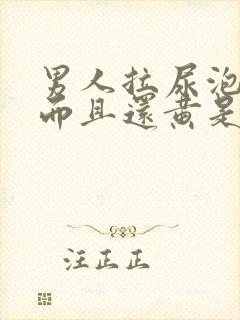 男人拉尿泡
而且還黄是
汪正正